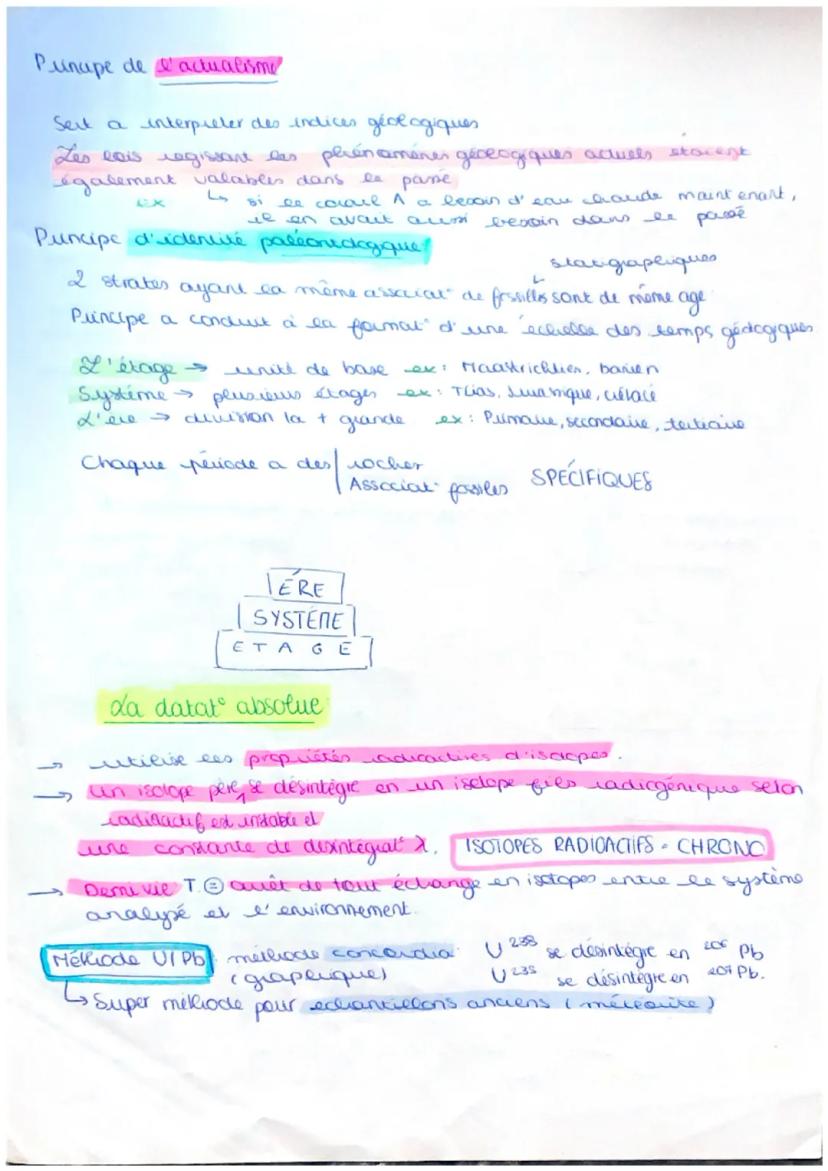 Principe de l'actualisme
Sert a interpreter des indices géologiques
Les lois regissant les phénomènes géologiques actuels étaient
également valables dans le passé
ex ↳ si le corail A a besoin d'eau chaude maintenant,
il en avait aussi besoin dans le passé
Principe d'identité paléontologique
stratigraphiques
2 strates ayant la même associat° de fossiles sont de même age
Principe a conduit à la format° d'une échelle des temps géologiques
L'étage → unité de base ex: Maastrichtien, barien
Système → plusieurs étages ex: Trias, Jurassique, crétacé
L'ère → division la + grande ex: Primaire, secondaire, tertiaire
Chaque période a des | roches
Associat° fossiles SPÉCIFIQUES
ÈRE
SYSTÈME
ETAGE
La datat° absolue
→ utilise les propriétés radioactives d'isotopes.
→ un isotope père, se désintègre en un isotope fils radiogénique selon
radioactif est instable et
une constante de désintégrat° λ. ISOTOPES RADIOACTIFS = CHRONO
→ Demi vie T. = arrêt de tout échange en isotopes entre le système
analysé et l'environnement.
Méthode U/Pb méthode concordia U 238 se désintègre en 206 Pb
(graphique) U 235 se désintègre en 207 Pb.
↳ Super méthode pour echantillons anciens (météorite)